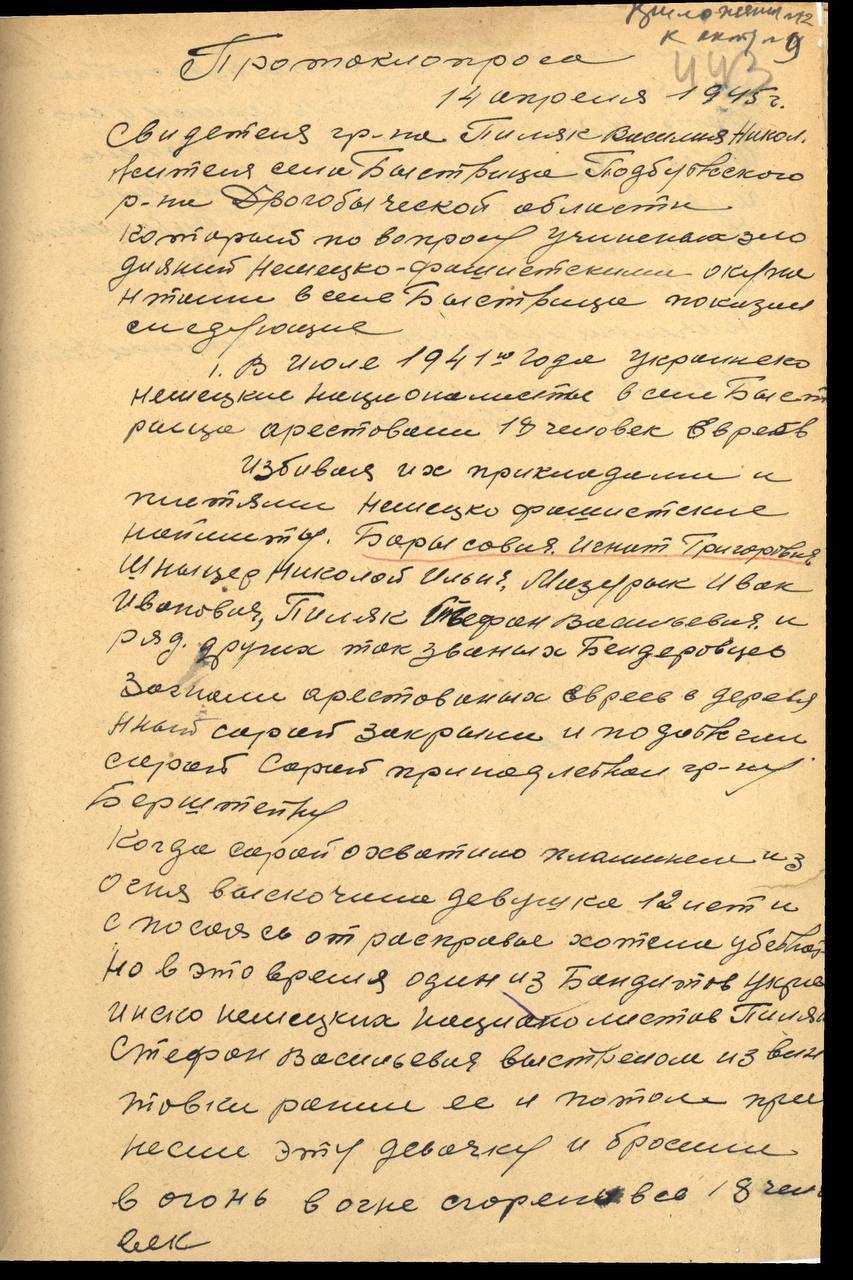 Приложение №2
к акту
9
443
Протокл опроса
14 апреля 1945 г.
Свидетеля гр-на Пиляк Василия Никол.
жителя села Быстрица Подбужского
р-на Дрогобыческой области
который по вопросу учиненых зло
дияний немецко-фашистскими окупа
нтами в селе Быстрица показал
следующие
1. В июле 1941 го года украинско
немецкие националисты в селе Быст
рица арестовали 18 человек Евреев
избивая их прикладами и
плетями немецко фашистские
Барысовия. Игнат Григоровия
Шныцер Николой Илия, Мазурык Иван
Ивановия, Пиляк Стефан Васильевия. и
ряд. других так званых Бендеровцев
Загнали арестованых Евреев в деревя
нный сарай закрыли и подожгли
сарай Сарай принадлежал гр-ну
Берштейну
Когда сарай охватило пламинем из
огня выскочила девушка 12 лет и
спосаясь от расправы хотела убежать
но в это время один из Бандитов укра
инско немецких националистов Пиляк
Стефан Васильевия выстрелом из вин
товки ранил ее и потом при
несли эту девочку и бросили
в огонь в огне сгорели все 18 чело
век